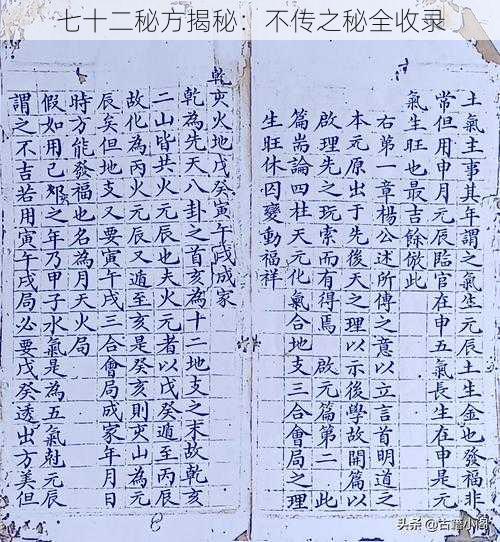 七十二秘方揭秘：不传之秘全收录
土氣主事其年謂之氣生元辰土生金也發福非
常但用申月元辰臨官在申五氣長生在申是元
氣生旺也最吉餘倣此
右第一章楊公述所傳之意以立言首明道之
本元原出于先後天之理以示後學故開篇以
啟理先之玩索而有得焉 啟元篇第二 此
篇耑論四柱天元化氣合地支三合會局之理
生旺休囚變動福祥
乾亥火地戊癸寅午戌成家
乾為先天八卦之首亥為十二地支之末故乾亥
二山皆共火元辰也夫火元者以戊癸遁至丙辰
故化為丙火元辰又遁至亥是癸亥則亥山為元
辰矣但地支又要寅午戌三合會局成家年月日
時方能發福也名為月天火局
假如用己邜之年乃甲子水氣是為五氣尅元辰
謂之不吉若用寅午戌局必要戊癸透出方美但
头条 @古籍小阁